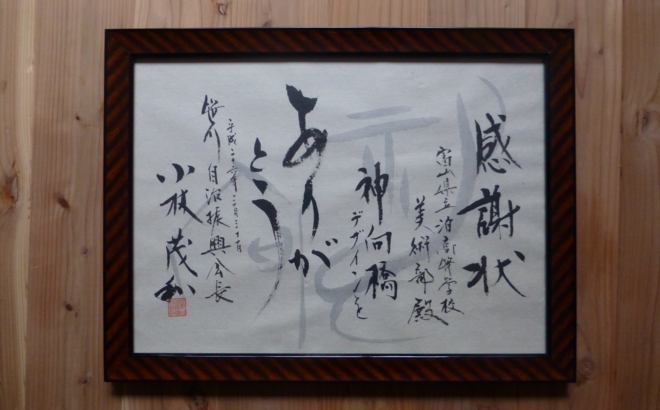 感謝状
富山県立泊高等学校
美術部殿
神向橋
デザインを
ありが
とう
平成二十六年三月三十日
笹川自治振興会長
小枝茂